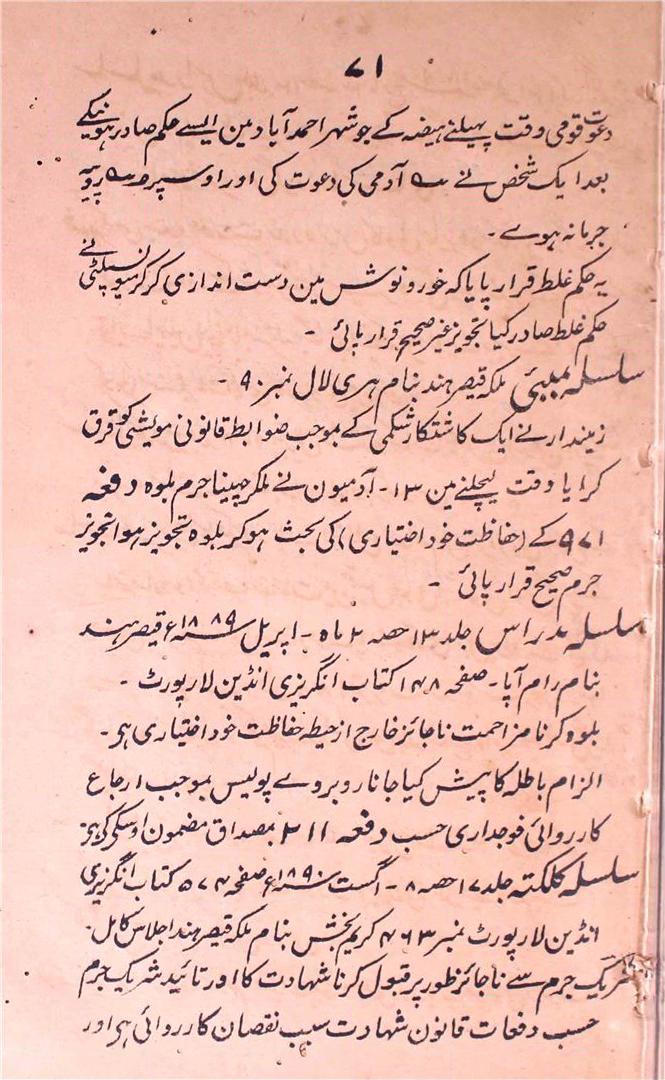 ۷۱
دعوت قومی وقت پھیلنے ہیضہ کے جو شہر احمد آباد مین ایسے حکم صادر ہونیکے
بعد ایک شخص نے آدمی کی دعوت کی اور اوسپر روپیہ
جرمانہ ہوے -
یہ حکم غلط قرار پایا کہ خورونوش مین دست اندازی کر کر میونسپلٹی نے
حکم غلط صادر کیا تجویز غیر صحیح قرار پائی -
سلسلہ بمبئی ملکہ قیصر ہند بنام ہری لال نمبر ۹۰ -
زمیندار نے ایک کاشتکار شکمی کے بموجب ضوابط قانونی مویشی کو قرق
کرایا وقت لیچلنے مین ۱۳ - آدمیون نے ملکر چھینا جرم بلوہ دفعہ
۹۷۱ کے (حفاظت خود اختیاری) کی بحث ہو کر بلوہ تجویز ہوا تجویز
جرم صحیح قرار پائی -
سلسلہ مدراس جلد ۱۳ حصہ ۴ ماہ - اپریل سنہ ۱۸۸۹ء قیصر ہند
بنام رام آپا - صفحہ ۱۴۸ کتاب انگریزی انڈین لارپورٹ -
بلوہ کرنا مزاحمت ناجائز خارج از حیطہ حفاظت خود اختیاری ہی -
الزام باطلہ کا پیش کیا جانا روبروے پولیس بموجب ارجاع
کارروائی فوجداری حسب دفعہ ۲۱۱ بمصداق مضمون اوسکی کی ہی
سلسلہ کلکتہ جلد ۱۷ حصہ ۸ - اگست سنہ ۱۸۹۰ء صفحہ ۵۷۴ کتاب انگریزی
انڈین لارپورٹ نمبر ۴۶۳ کریم بخش بنام ملکہ قیصر ہند اجلاس کامل -
شریک جرم سے ناجائز طور پر قبول کرنا شہادت کا اور تائید شریک جرم
حسب دفعات قانون شہادت سبب نقصان کارروائی ہی اور